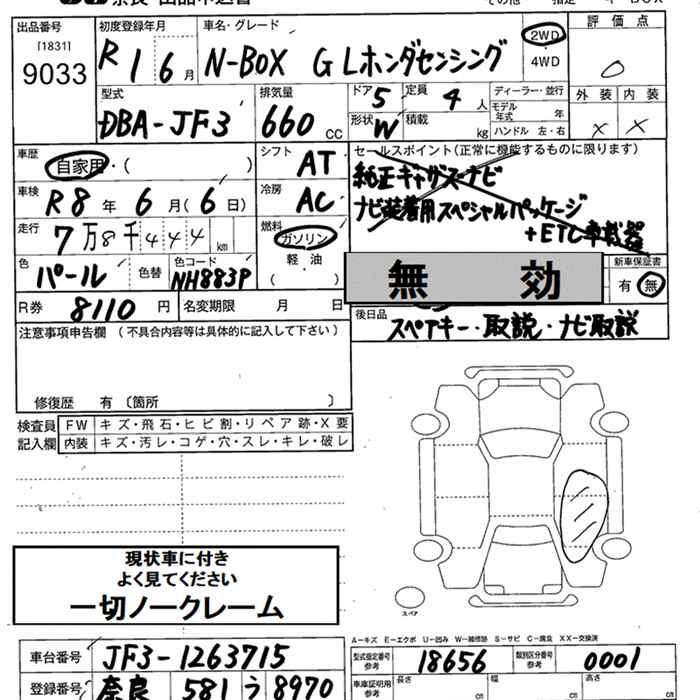 出品番号 [1831] 9033
初度登録年月 R1 6月
車名・グレード N-BOX G Lホンダセンシング
2WD
4WD
評価点
外装 × 内装 ×
型式 DBA-JF3
排気量 660 CC
ドア 5
形状 W
定員 4 人
積載 kg
ディーラー・並行
モデル年式 年
ハンドル 左・右
車歴 自家用・( )
シフト AT
車検 R8年 6月(6日)
冷房 AC
走行 7万8千444 km
燃料 ガソリン
軽油
( )
色 パール 色替
色コード NH883P
セールスポイント(正常に機能するものに限ります)
純正ギャザズナビ
ナビ装着用スペシャルパッケージ
+ETC車載器
無効
新車保証書
有 無
R券 8110円
名変期限 月 日
後日品 スペアキー・取説・ナビ取説
注意事項申告欄 (不具合内容等は具体的に記入して下さい)
修復歴 有 〔箇所 〕
検査員記入欄
FW キズ・飛石・ヒビ割・リペア跡・X要
内装 キズ・汚レ・コゲ・穴・スレ・キレ・破レ
現状車に付き
よく見てください
一切ノークレーム
スペア
A-キズ E-エクボ U-凹み W-補修跡 S-サビ C-腐食 XX-交換済
車台番号 JF3-1263715
型式指定番号 参考 18656
類別区分番号 参考 0001
登録番号 奈良 581 う 8970
車庫証明用 参考 長さ cm 幅 cm 高さ cm